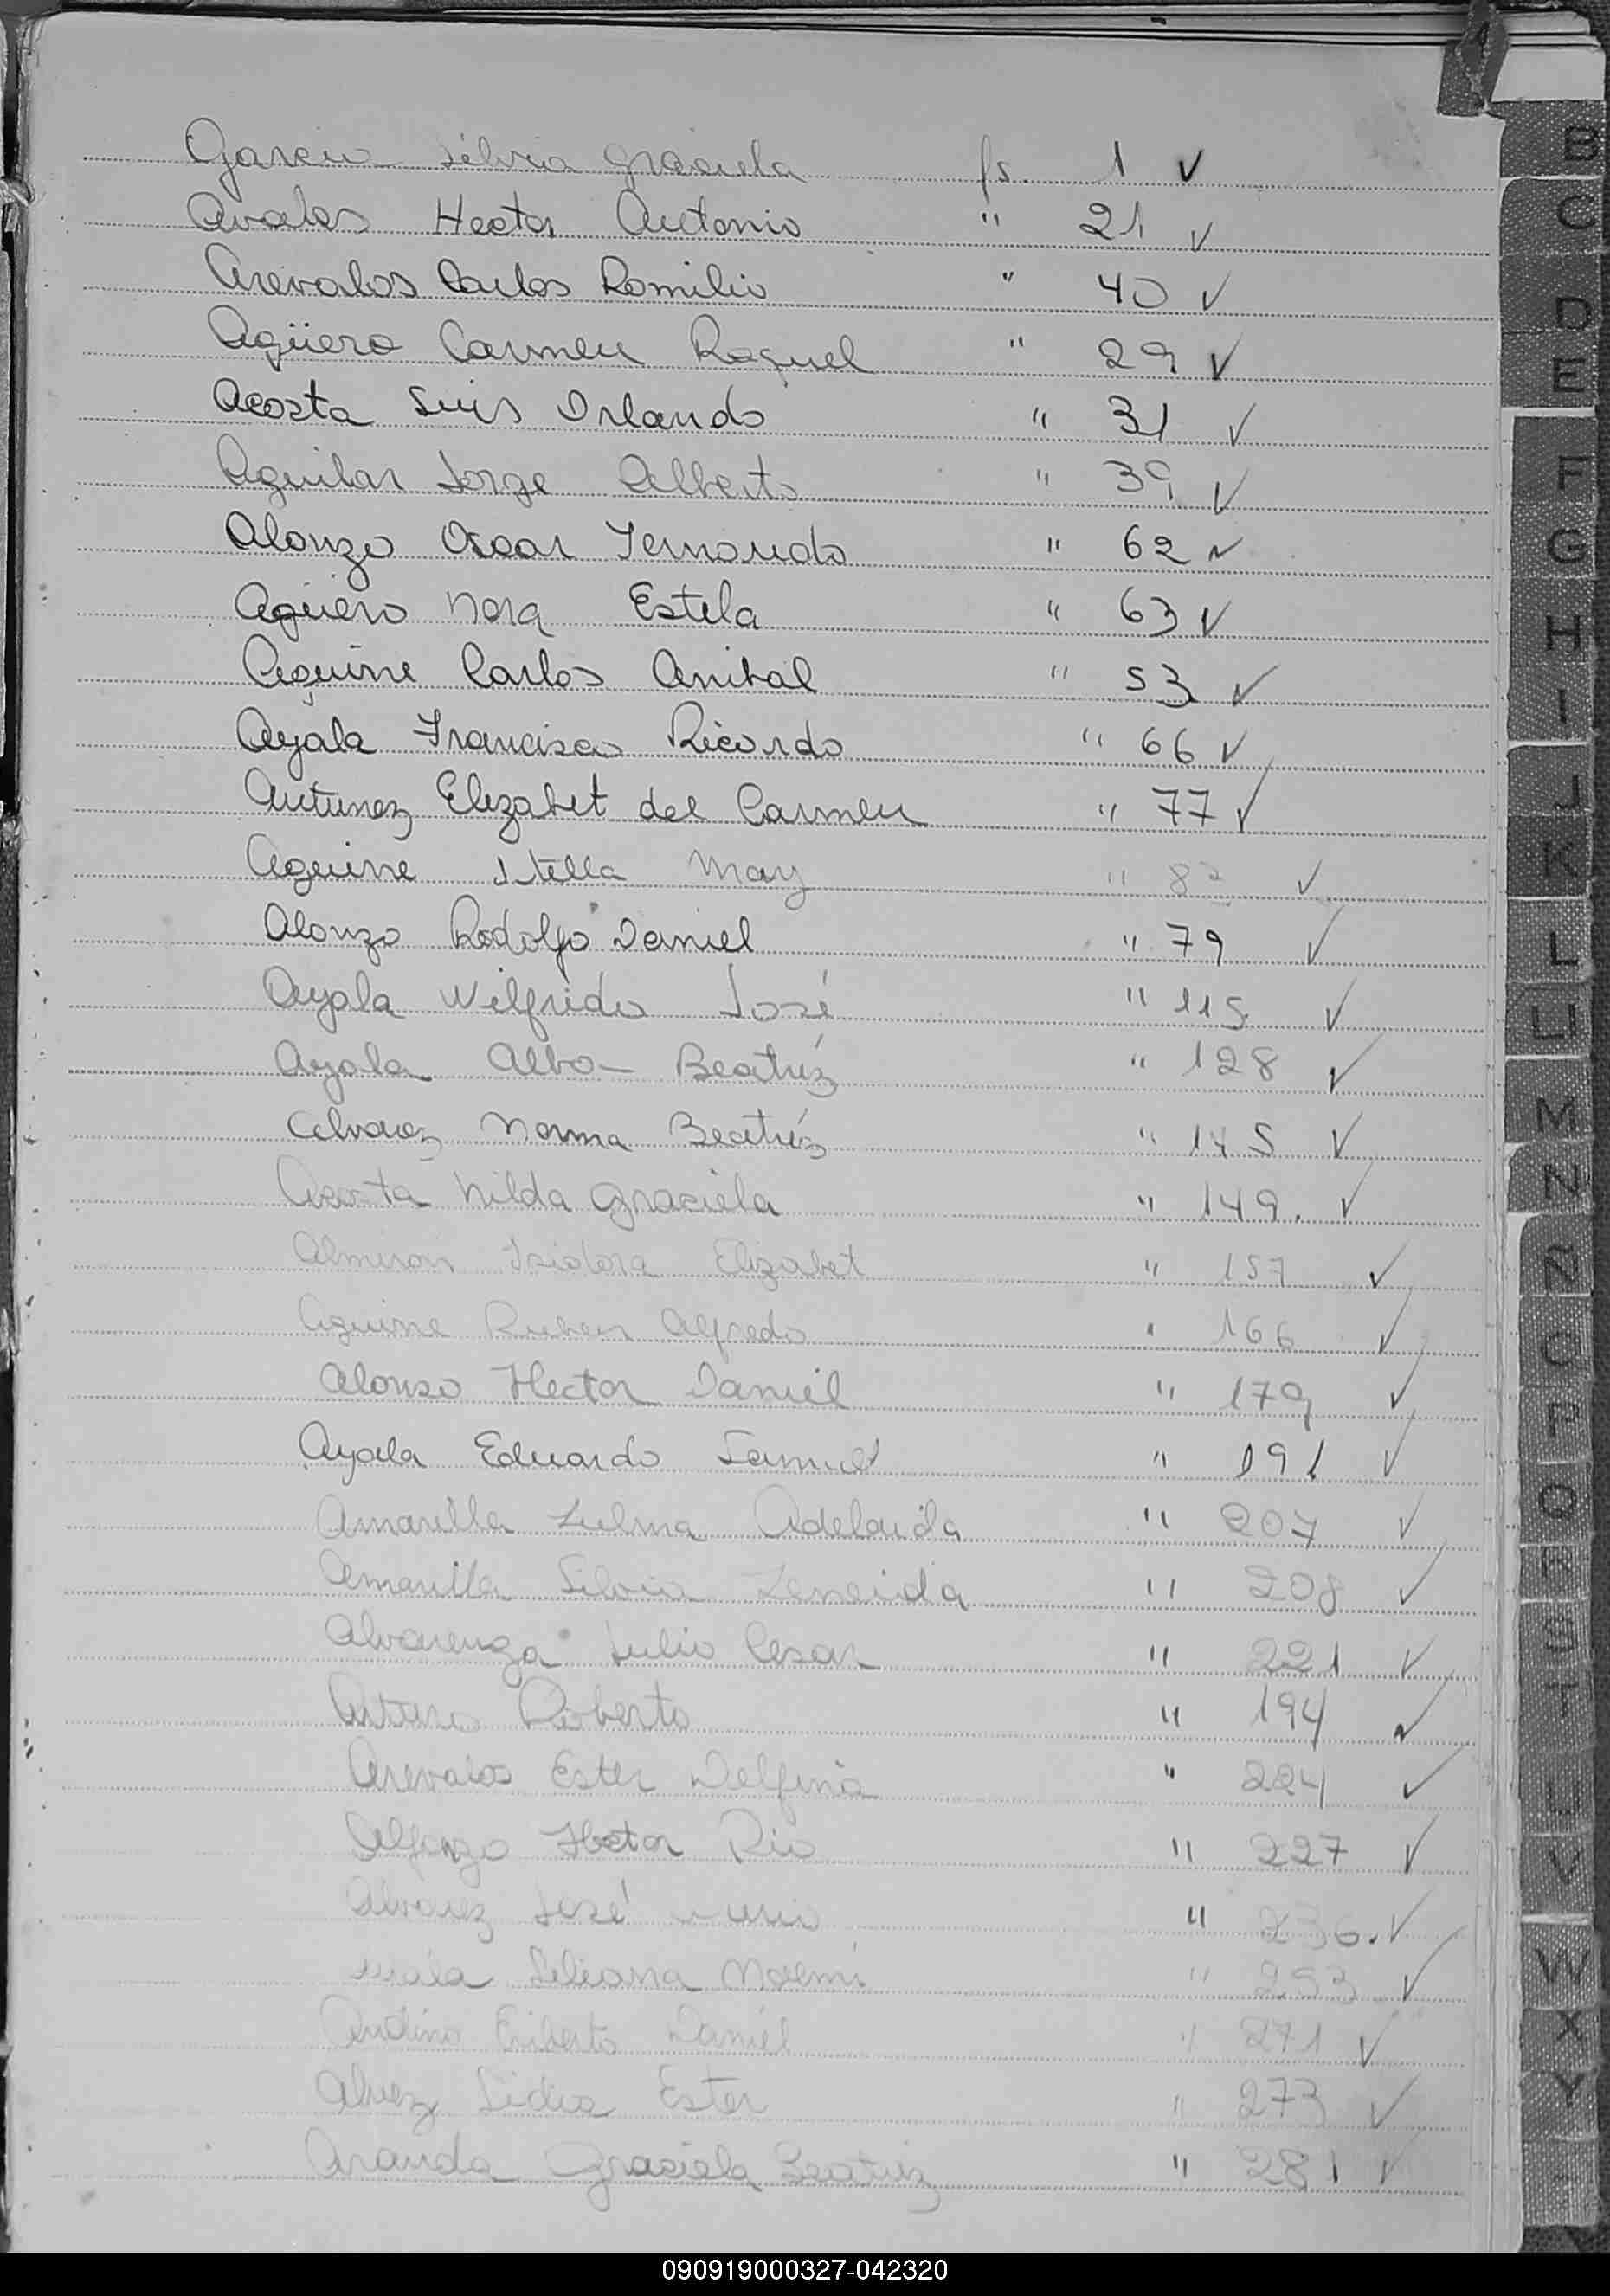 Garcia Silvia Graciela fs. 1 ✓
Avalos Hector Antonio " 21 ✓
Arevalos Carlos Romilio " 40 ✓
Agüero Carmen Raquel " 29 ✓
Acosta Luis Orlando " 31 ✓
Aguilar Jorge Alberto " 39 ✓
Alonzo Oscar Fernando " 62 ✓
Aguero Nora Estela " 63 ✓
Aguirre Carlos Anibal " 53 ✓
Ayala Francisco Ricardo " 66 ✓
Antunez Elizabet del Carmen " 77 ✓
Aguirre Stella Mary " 82 ✓
Alonzo Rodolfo Daniel " 79 ✓
Ayala Wilfrido José " 115 ✓
Ayala Alba Beatríz " 128 ✓
Alvarez Norma Beatríz " 145 ✓
Acosta Nilda Graciela " 149. ✓
Almiron Isidora Elizabet " 157 ✓
Aguirre Ruben Alfredo " 166 ✓
Alonso Hector Daniel " 179 ✓
Ayala Eduardo Samuel " 191 ✓
Amarilla Zulma Adelaida " 207 ✓
Amarilla Silvia Zeneida " 208 ✓
Alvarenga Julio Cesar " 221 ✓
Arturo Roberto " 194 ✓
Arevalos Ester Delfina " 224 ✓
Alfonzo Hector Rio " 227 ✓
Alvarez José " 236. ✓
Liliana Noemi " 253 ✓
Andino Eriberto Daniel " 271 ✓
Alvez Lidia Ester " 273 ✓
Aranda Graciela Beatriz " 281 ✓
A
B
C
D
E
F
G
H
I
J
K
L
LL
M
N
Ñ
O
P
Q
R
S
T
U
V
W
X
Y
090919000327-042320